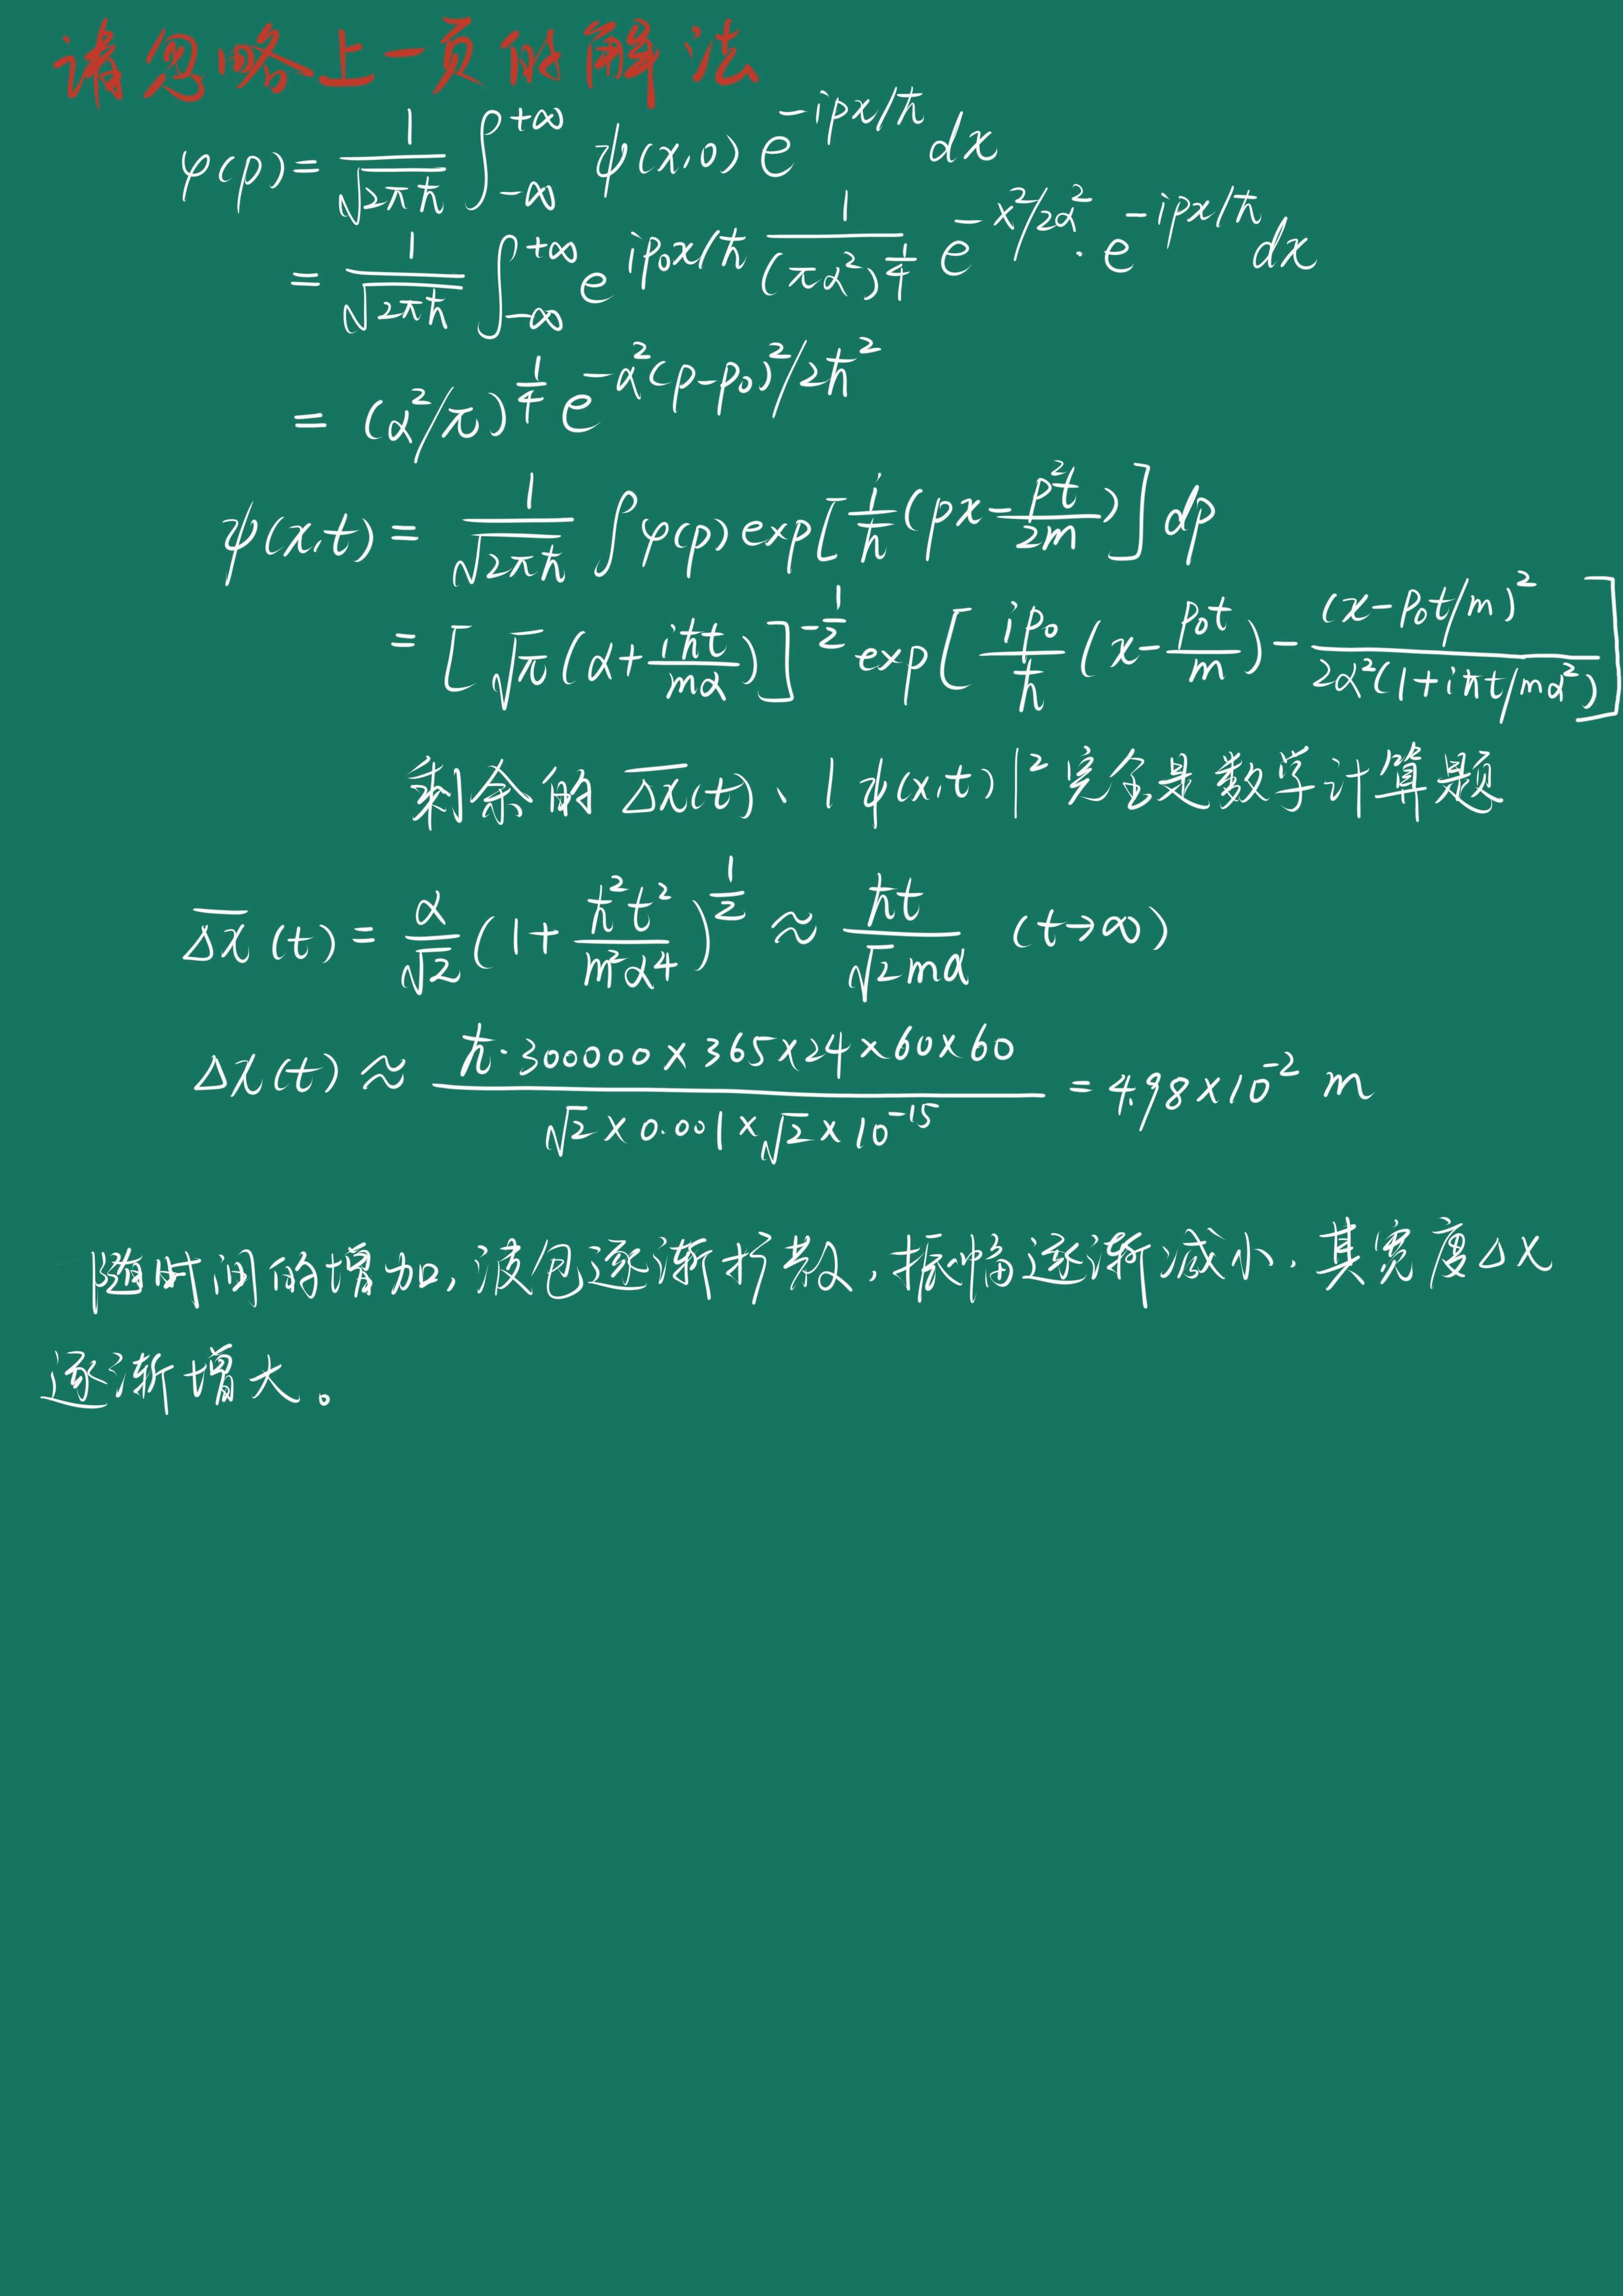 请忽略上一页的解法
φ(p) = \frac{1}{\sqrt{2πħ}} \int_{-∞}^{+∞} ψ(x,0) e^{-ipx/ħ} dx
= \frac{1}{\sqrt{2πħ}} \int_{-∞}^{+∞} e^{ip_0x/ħ} \frac{1}{(πα^2)^{\frac{1}{4}}} e^{-x^2/2α^2} · e^{-ipx/ħ} dx
= (α^2/π)^{\frac{1}{4}} e^{-α^2(p-p_0)^2/2ħ^2}
ψ(x,t) = \frac{1}{\sqrt{2πħ}} \int φ(p) exp[\frac{i}{ħ}(px-\frac{p^2t}{2m})] dp
= [\sqrt{π}(α+\frac{iħt}{mα})]^{-\frac{1}{2}} exp[\frac{ip_0}{ħ}(x-\frac{p_0t}{m})-\frac{(x-p_0t/m)^2}{2α^2(1+iħt/mα^2)}]
剩余的 \overline{Δx}(t)、|ψ(x,t)|^2 完全是数学计算题
\overline{Δx}(t) = \frac{α}{\sqrt{2}}(1+\frac{ħ^2t^2}{m^2α^4})^{\frac{1}{2}} ≈ \frac{ħt}{\sqrt{2}mα} (t→∞)
Δx(t) ≈ \frac{ħ·300000×365×24×60×60}{\sqrt{2}×0.001×\sqrt{2}×10^{-15}} = 4.98×10^{-2} m
随时间的增加,波包逐渐扩散,振幅逐渐减小,其宽度Δx
逐渐增大。